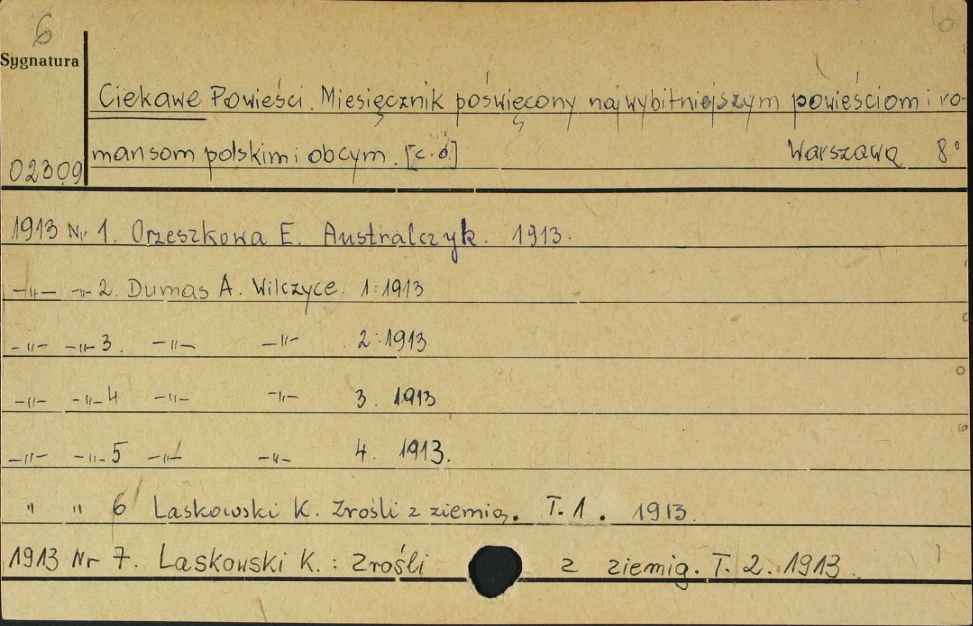 6
Sygnatura
Ciekawe Powieści. Miesięcznik poświęcony najwybitniejszym powieściom i ro-
mansom polskim i obcym. [c.d.] Warszawa 8°
02309
1913 Nr 1. Orzeszkowa E. Australczyk. 1913.
—"— —"— 2. Dumas A. Wilczyce. 1:1913
—"— —"— 3. —"— —"— 2:1913
—"— —"— 4 —"— —"— 3. 1913
—"— —"— 5 —"— —"— 4. 1913.
" " 6 Laskowski K. Zrośli z ziemią. T. 1. 1913.
1913 Nr 7. Laskowski K. : Zrośli z ziemią. T. 2. 1913.